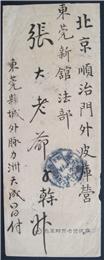 北京順治門外皮庫營
東莞新館法部
張大老爺子幹升
東莞縣城外脉力洲大成百付